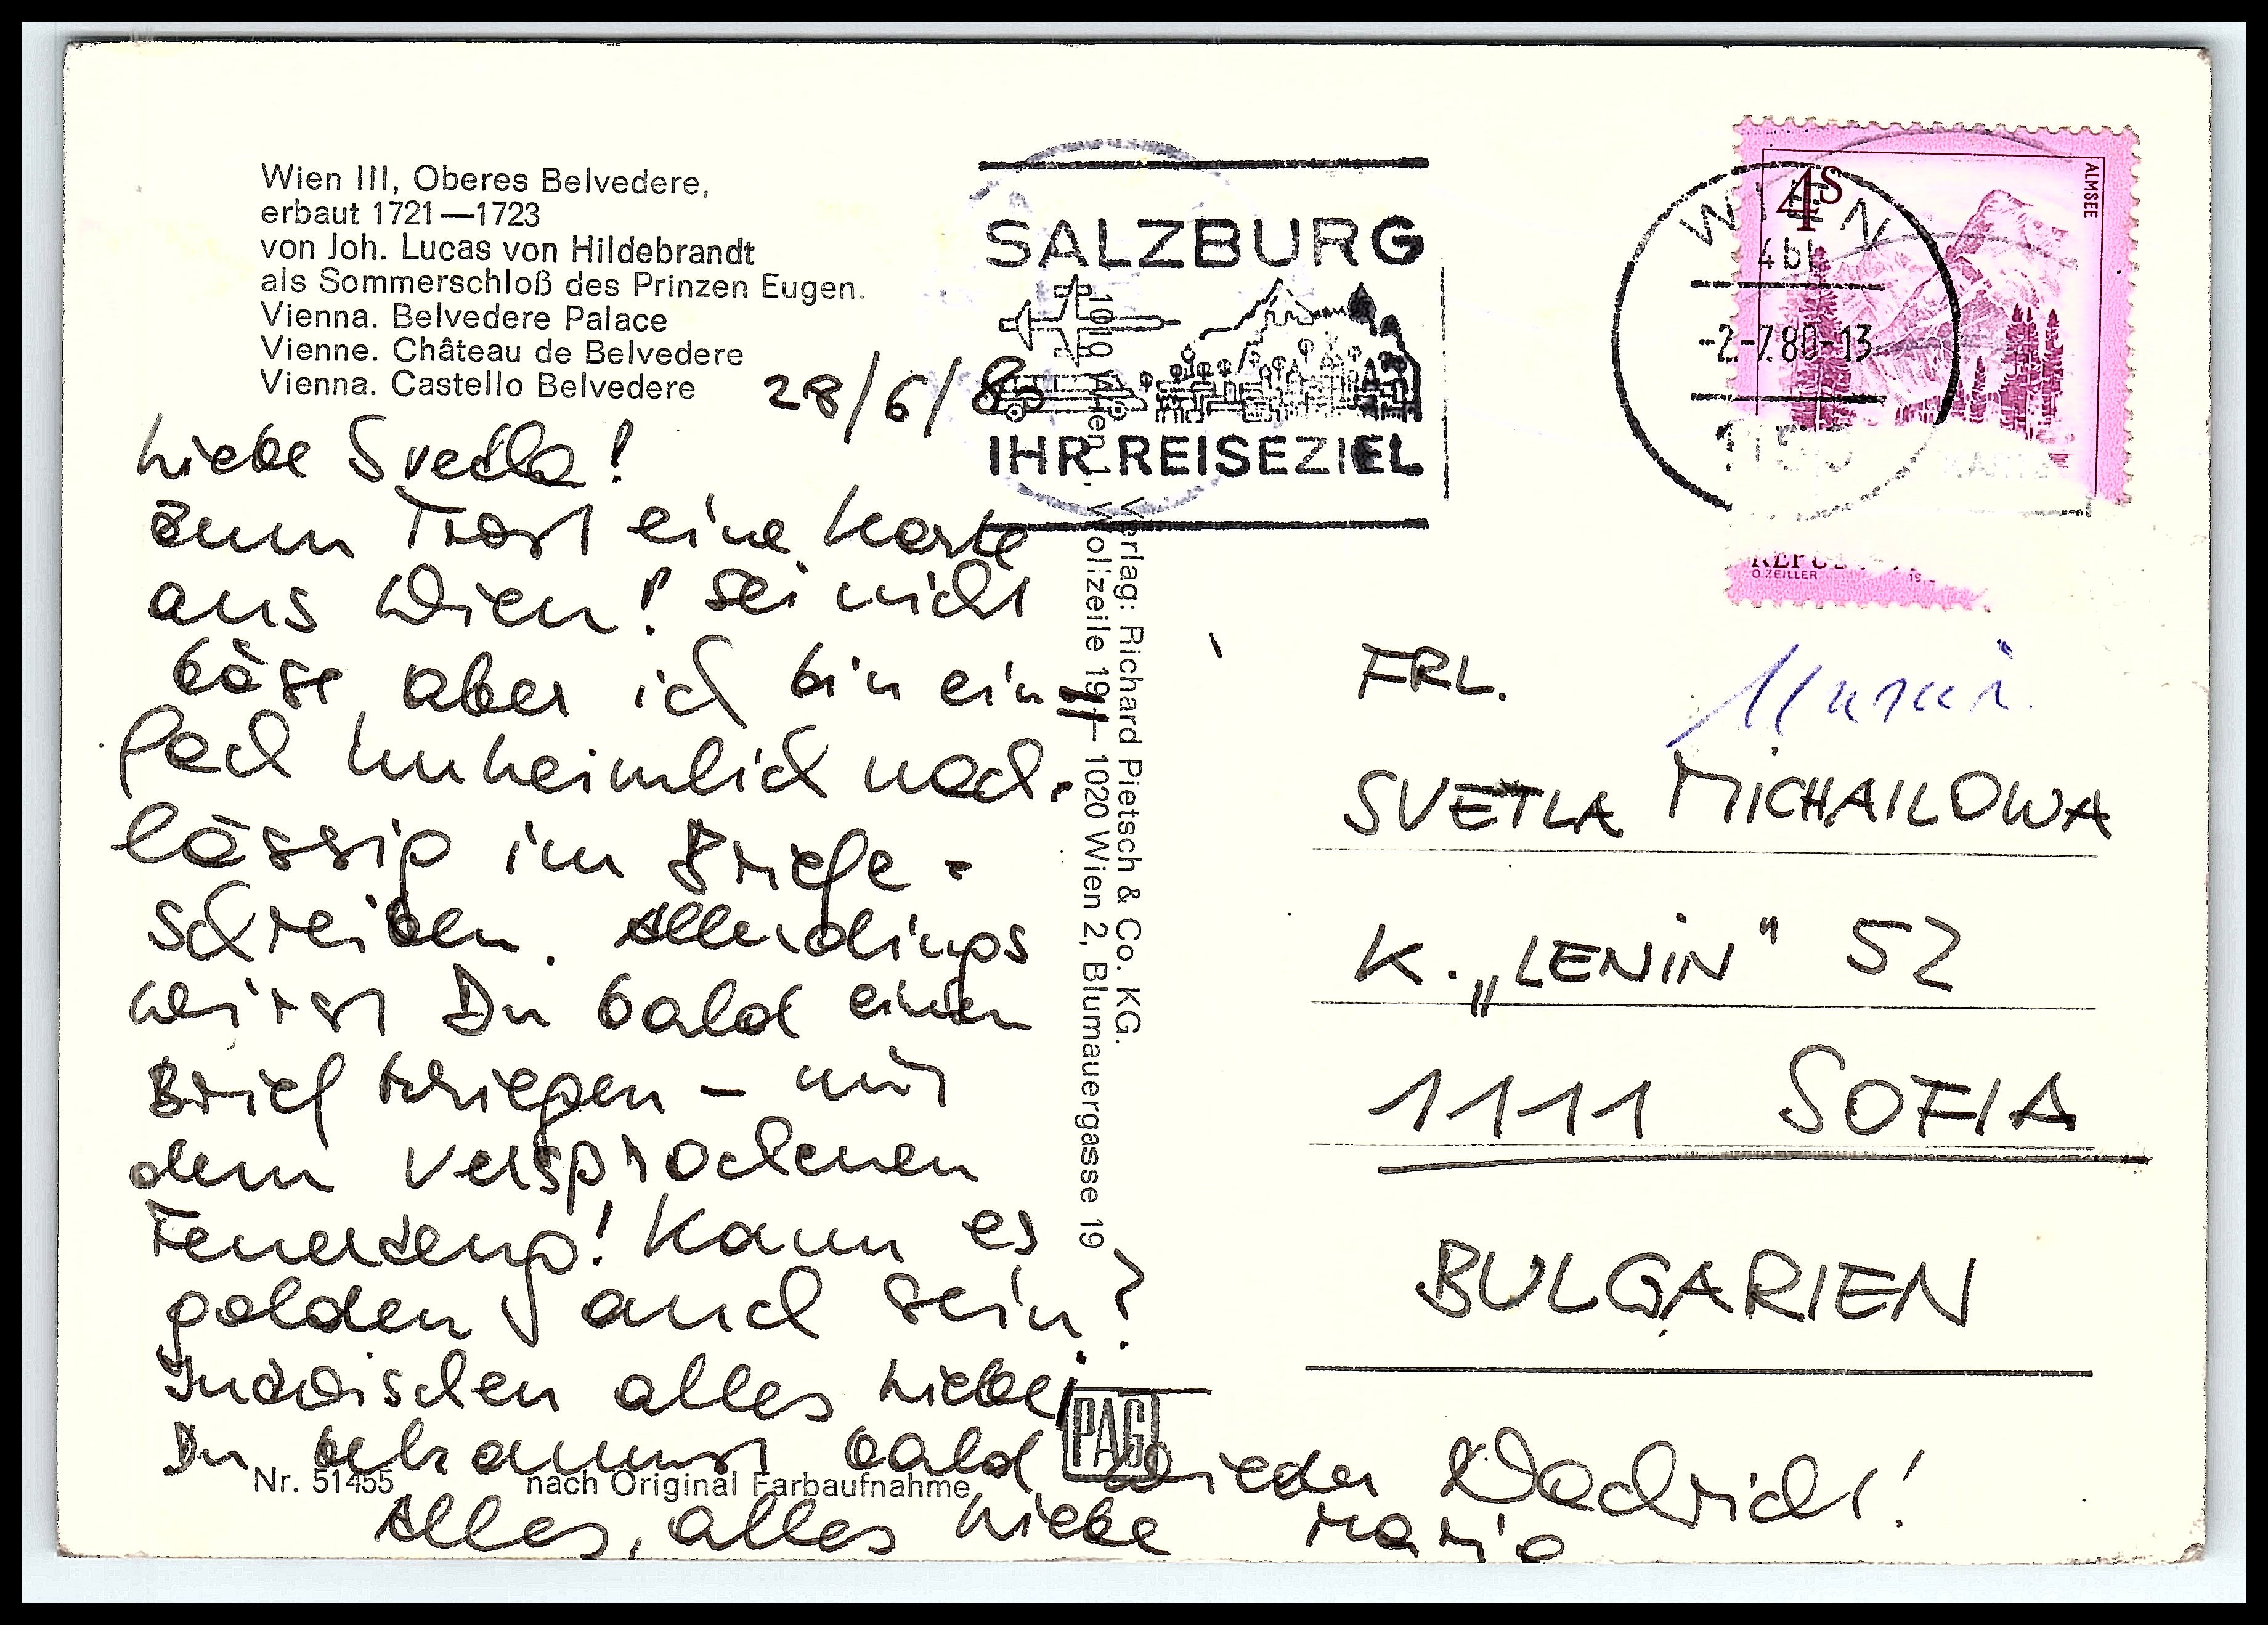 Wien III, Oberes Belvedere,
erbaut 1721—1723
von Joh. Lucas von Hildebrandt
als Sommerschloß des Prinzen Eugen.
Vienna. Belvedere Palace
Vienne. Château de Belvedere
Vienna. Castello Belvedere
28/6/80
Liebe Svetla!
zum Trost eine Karte
aus Wien! Sei nicht
böse, aber ich bin ein=
fach unheimlich nach-
lässig im Briefe-
schreiben. Allerdings
wirst Du bald einen
Brief kriegen – mit
dem versprochenen
Feuerzeug! Kann es
golden auch sein?
Inzwischen alles Liebe,
Du bekommst bald wieder Nachricht!
Alles, alles Liebe Maria
Nr. 51455 nach Original Farbaufnahme
PAG
Verlag: Richard Pietsch & Co. KG.
1010 Wien 1, Wollzeile 19 — 1020 Wien 2, Blumauergasse 19
SALZBURG
IHR REISEZIEL
WIEN
-2-7.80-13
4S
ALMSEE
O.ZEILLER
FRL.
SVETLA MICHAILOWA
K. „LENIN" 52
1111 SOFIA
BULGARIEN